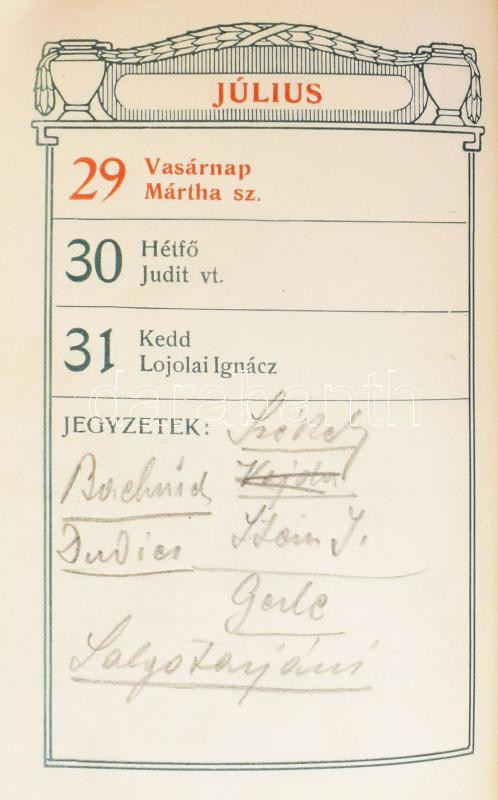 JÚLIUS
29 Vasárnap
Mártha sz.
30 Hétfő
Judit vt.
31 Kedd
Lojolai Ignácz
JEGYZETEK:
Dudics Stein J.
Gerle
Salgotarjáni
darabanth